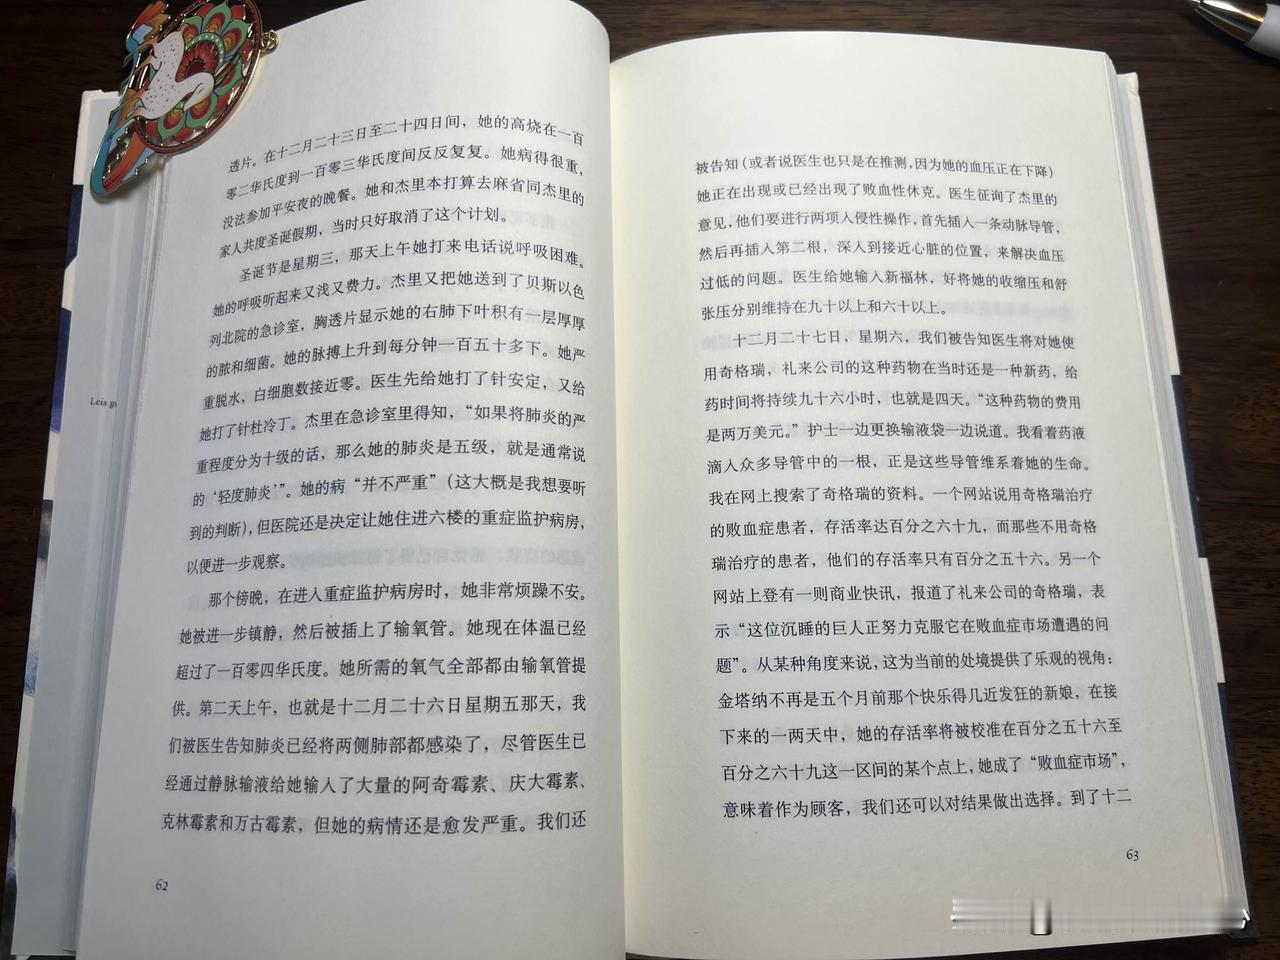 透片。在十二月二十三日至二十四日间，她的高烧在一百
零二华氏度到一百零三华氏度间反反复复。她病得很重，
没法参加平安夜的晚餐。她和杰里本打算去麻省同杰里的
家人共度圣诞假期，当时只好取消了这个计划。
圣诞节是星期三，那天上午她打来电话说呼吸困难。
她的呼吸听起来又浅又费力。杰里又把她送到了贝斯以色
列北院的急诊室，胸透片显示她的右肺下叶积有一层厚厚
的脓和细菌。她的脉搏上升到每分钟一百五十多下。她严
重脱水，白细胞数接近零。医生先给她打了针安定，又给
她打了针杜冷丁。杰里在急诊室里得知，“如果将肺炎的严
重程度分为十级的话，那么她的肺炎是五级，就是通常说
的‘轻度肺炎’”。她的病“并不严重”（这大概是我想要听
到的判断），但医院还是决定让她住进六楼的重症监护病房，
以便进一步观察。
那个傍晚，在进入重症监护病房时，她非常烦躁不安。
她被进一步镇静，然后被插上了输氧管。她现在体温已经
超过了一百零四华氏度。她所需的氧气全部都由输氧管提
供。第二天上午，也就是十二月二十六日星期五那天，我
们被医生告知肺炎已经将两侧肺部都感染了，尽管医生已
经通过静脉输液给她输入了大量的阿奇霉素、庆大霉素、
克林霉素和万古霉素，但她的病情还是愈发严重。我们还
62
Leis g
被告知（或者说医生也只是在推测，因为她的血压正在下降）
她正在出现或已经出现了败血性休克。医生征询了杰里的
意见，他们要进行两项入侵性操作，首先插入一条动脉导管，
然后再插入第二根，深入到接近心脏的位置，来解决血压
过低的问题。医生给她输入新福林，好将她的收缩压和舒
张压分别维持在九十以上和六十以上。
十二月二十七日，星期六，我们被告知医生将对她使
用奇格瑞，礼来公司的这种药物在当时还是一种新药，给
药时间将持续九十六小时，也就是四天。“这种药物的费用
是两万美元。”护士一边更换输液袋一边说道。我看着药液
滴入众多导管中的一根，正是这些导管维系着她的生命。
我在网上搜索了奇格瑞的资料。一个网站说用奇格瑞治疗
的败血症患者，存活率达百分之六十九，而那些不用奇格
瑞治疗的患者，他们的存活率只有百分之五十六。另一个
网站上登有一则商业快讯，报道了礼来公司的奇格瑞，表
示“这位沉睡的巨人正努力克服它在败血症市场遭遇的问
题”。从某种角度来说，这为当前的处境提供了乐观的视角：
金塔纳不再是五个月前那个快乐得几近发狂的新娘，在接
下来的一两天中，她的存活率将被校准在百分之五十六至
百分之六十九这一区间的某个点上，她成了“败血症市场”，
意味着作为顾客，我们还可以对结果做出选择。到了十二
63